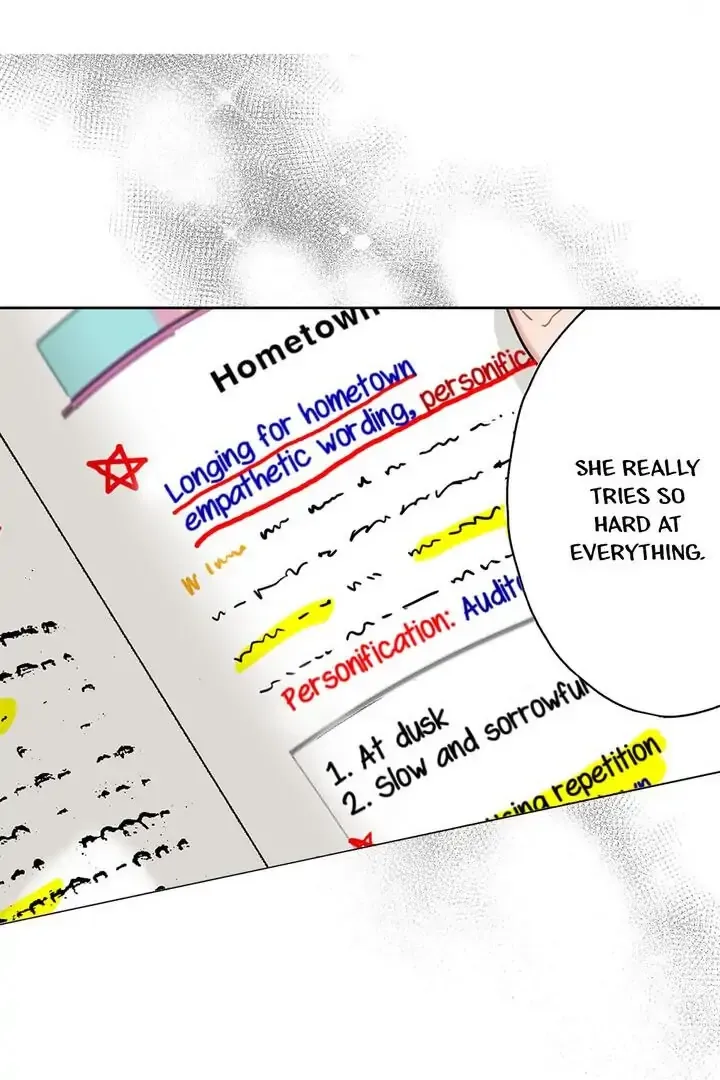 Hometown
Longing for hometown
empathetic wording, personific
Personification:
1. At dusk
2. Slow and sorrowful
using repetition
SHE REALLY
TRIES SO
HARD AT
EVERYTHING.